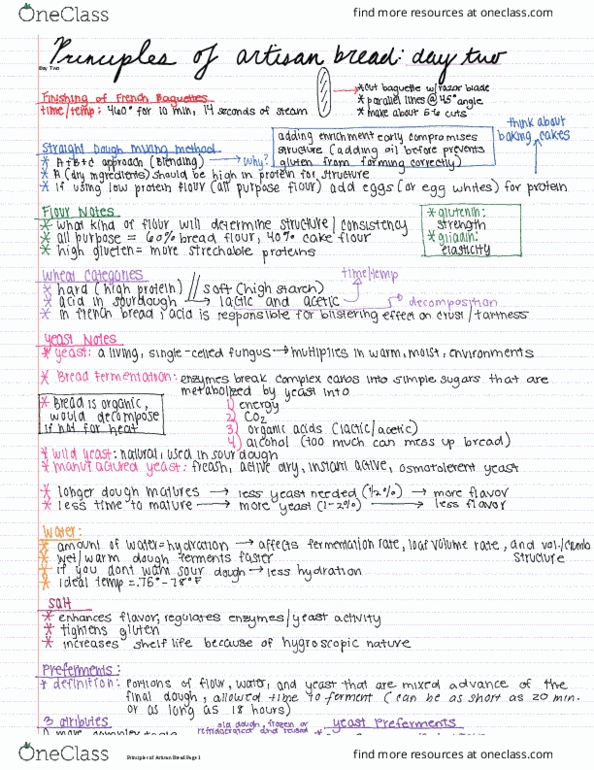 OneClass
find more resources at oneclass.com
Principles of artisan bread: day two
Day Two
Finishing of French Baguettes
time/temp: 460° for 10 min, 14 seconds of steam
*cut baguette w/razor blade
*parallel lines @ 45° angle
*make about 5-6 cuts
think about
baking cakes
Straight Dough Mixing method
* A+B+C approach (Blending) → why?
adding enrichment early compromises
structure (adding oil before prevents
gluten from forming correctly)
* A (dry ingredients) should be high in protein for structure
* if using low protein flour (all purpose flour) add eggs (or egg whites) for protein
Flour Notes
* what kind of flour will determine structure/consistency
* all purpose = 60% bread flour, 40% cake flour
* high glueten = more strechable proteins
* glutenin:
strength
* gliadin:
elasticity
Wheat Categories
* hard (high protein) // soft (high starch)
time/temp
* acid in sourdough → lactic and acetic
decomposition
* in french bread, acid is responsible for blistering effect on crust/tartness
Yeast Notes
* yeast: a living, single-celled fungus → multiplies in warm, moist, environments
* Bread fermentation: enzymes break complex carbs into simple sugars that are
metabolized by yeast into
1) energy
2) CO2
3) organic acids (lactic/acetic)
4) alcohol (too much can mess up bread)
* Bread is organic,
would decompose
if not for heat
* wild yeast: natural, used in sour dough
* manufactured yeast: fresh, active dry, instant active, osmatolerent yeast
* longer dough matures → less yeast needed (1/2%) → more flavor
* less time to mature → more yeast (1-2%) → less flavor
Water:
* amount of water=hydration → affects fermentation rate, loaf volume rate, and vol./crumb
structure
* wet/warm dough ferments faster
* if you dont want sour dough → less hydration
* ideal temp = 75°-78°F
Salt
* enhances flavor, regulates enzymes/yeast activity
* tightens gluten
* increases shelf life because of hygroscopic nature
Preferments:
* definition: portions of flour, water, and yeast that are mixed advance of the
final dough, allowed time to ferment (can be as short as 20 min.
or as long as 18 hours)
3 attributes
old dough, frozen or
refrigerated and reused
yeast Preferments
Principles of Artisan Bread Page 1
OneClass
find more resources at oneclass.com